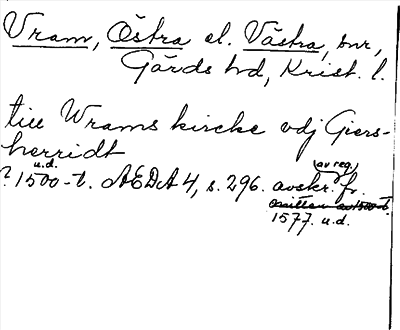 Vram, Östra el. Västra, snr,
Gärds hd, Krist. l.
till Wrams kircke vdj Giers-
herridt
u.d. (av reg.)
? 1500-t. ÆDA 4, s. 296. avskr. fr.
mitten av 1500-t.
1577. u.d.